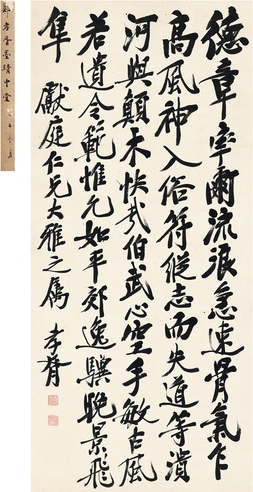 德章率爾流浪急速骨氣乍
高風神入俗符縱志而失道等潰
河與顛木快哉伯武心空手敏古風
若遺令範惟允如平郊逸驥晚景飛
隼
獻庭仁兄大雅之屬
孝胥
鄭孝胥墨蹟中堂